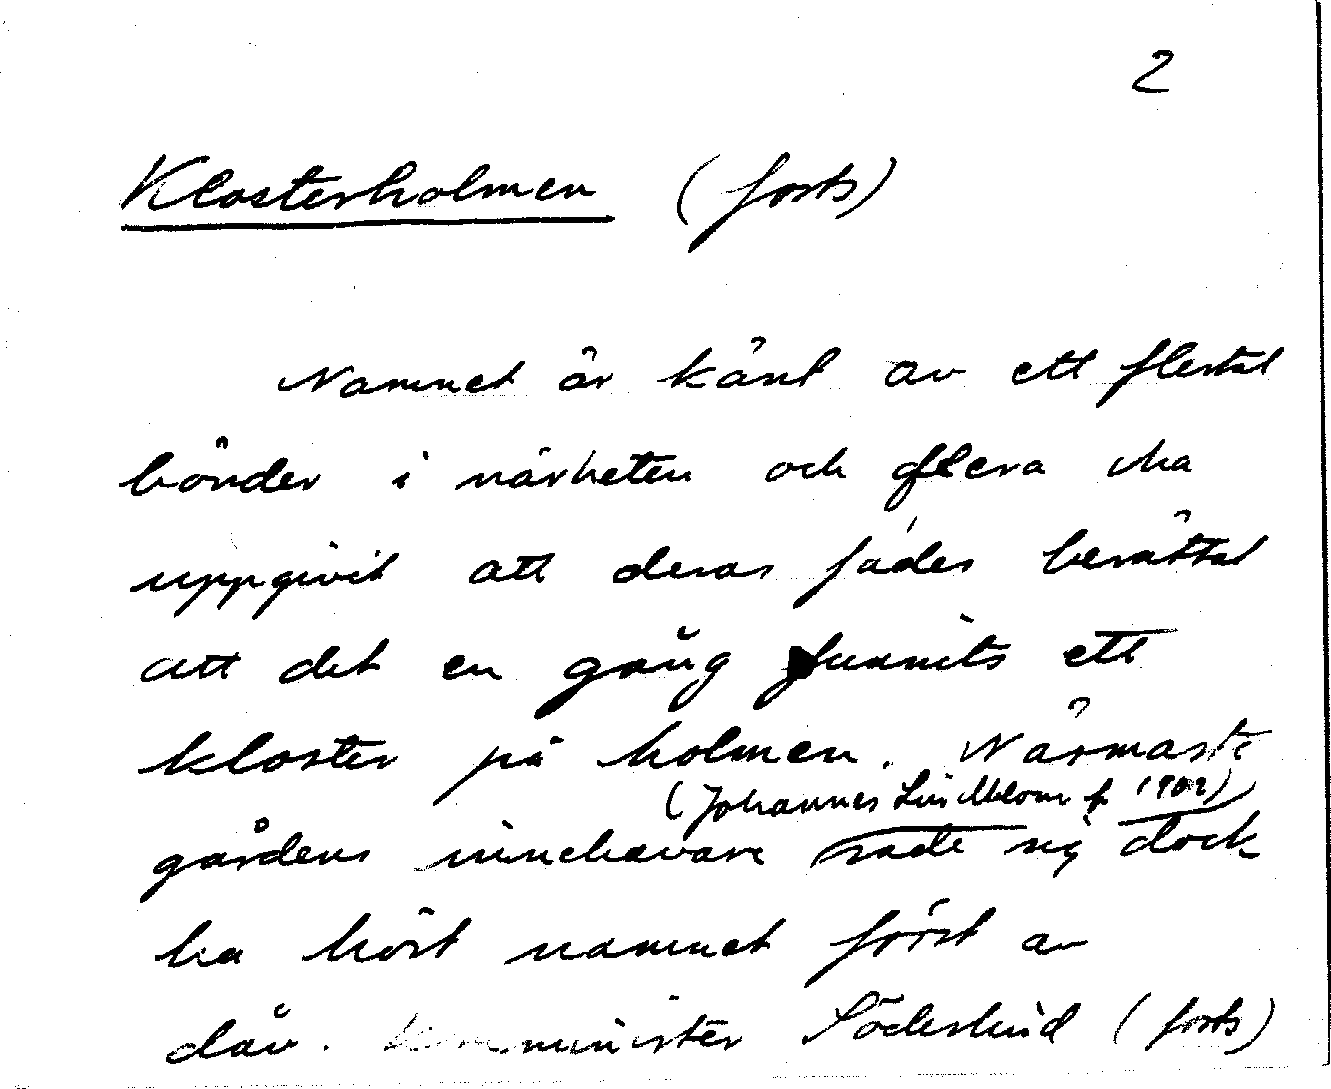 2
Klosterholmen (forts)
Namnet är känt av ett flertal
bönder i närheten och flera ha
uppgivit att deras fäder berättat
att det en gång funnits ett
kloster på holmen. Närmaste
(Johannes Lindblom f. 1902)
gårdens innehavare sade sig dock
ha hört namnet först av
dåv. komminister Söderlund (forts)